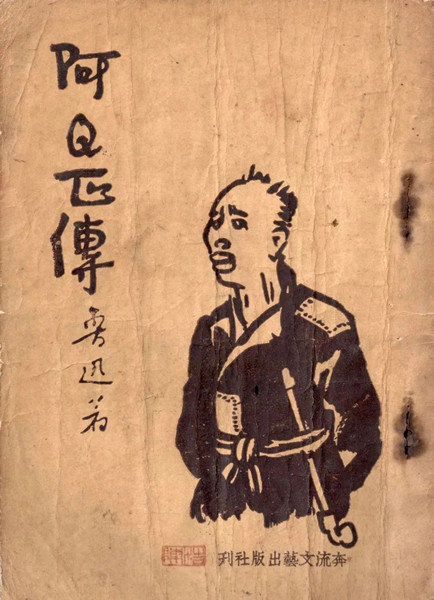 阿Q正傳
魯迅着
奔流文藝出版社刊